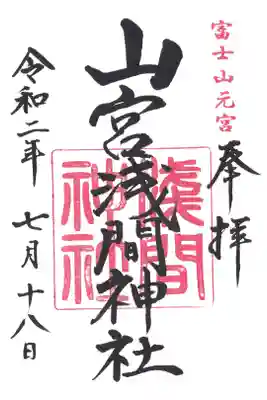 富士山元宮
奉拝
山宮浅間神社
淺間神社
令和二年 七月十八日